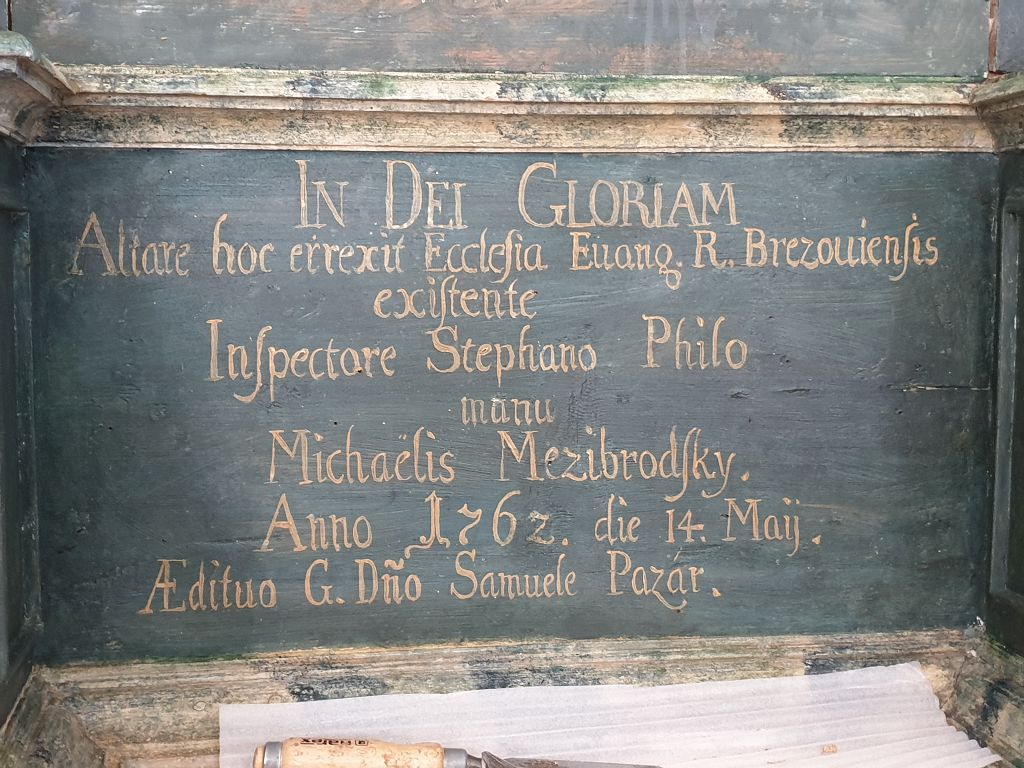 IN DEI GLORIAM
Altare hoc errexit Eccleſia Euang. R. Brezouienſis
exiſtente
Inſpectore Stephano Philo
manu
Michaëlis Mezibrodſky.
Anno 1762. die 14. Maij.
Ædituo G. Dño Samuele Pazár.